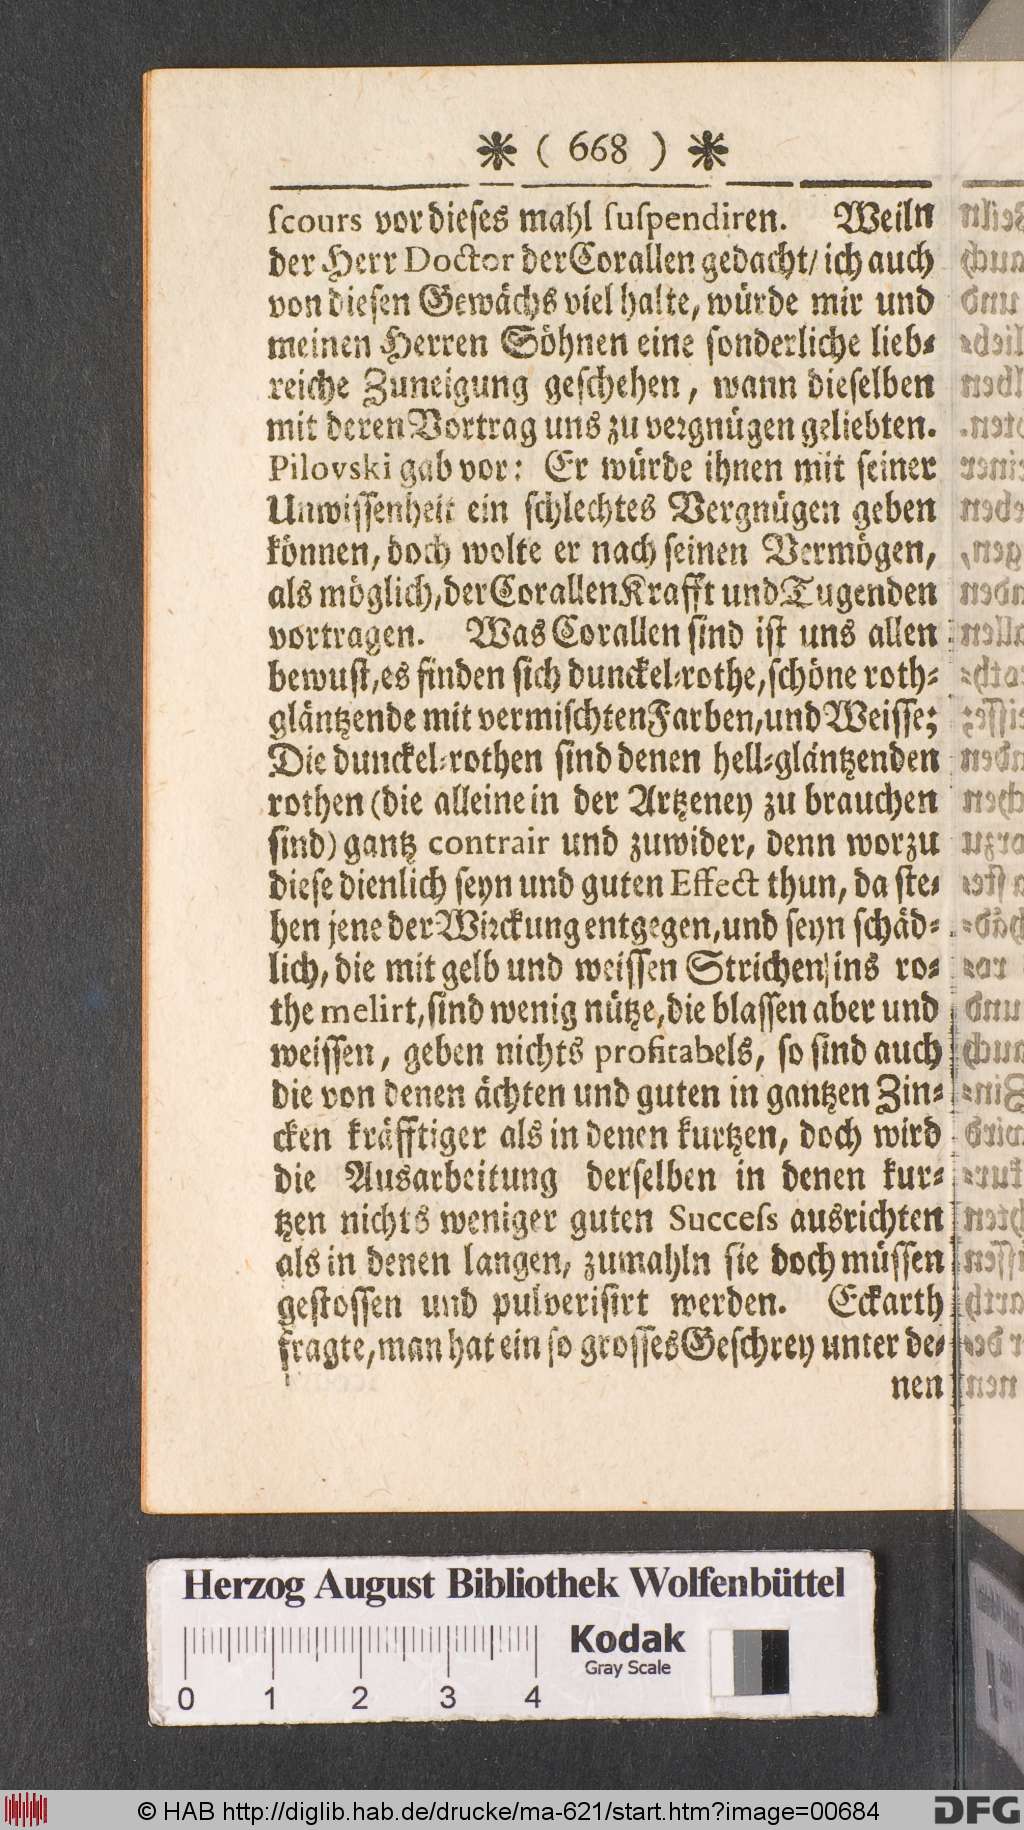 ❋ ( 668 ) ❋
ſcours vor dieſes mahl ſuſpendiren. Weiln
der Herr Doctor der Corallen gedacht/ ich auch
von dieſen Gewächs viel halte, würde mir und
meinen Herren Söhnen eine ſonderliche lieb-
reiche Zuneigung geſchehen, wann dieſelben
mit deren Vortrag uns zu vergnügen geliebten.
Pilovski gab vor: Er würde ihnen mit ſeiner
Unwiſſenheit ein ſchlechtes Vergnügen geben
können, doch wolte er nach ſeinen Vermögen,
als möglich, der Corallen Krafft und Tugenden
vortragen. Was Corallen ſind iſt uns allen
bewuſt, es finden ſich dunckel-rothe, ſchöne roth-
gläntzende mit vermiſchten Farben, und Weiſſe;
Die dunckel-rothen ſind denen hell-gläntzenden
rothen (die alleine in der Artzeney zu brauchen
ſind) gantz contrair und zuwider, denn worzu
dieſe dienlich ſeyn und guten Effect thun, da ſte-
hen jene der Wirckung entgegen, und ſeyn ſchäd-
lich, die mit gelb und weiſſen Strichen ins ro-
the melirt, ſind wenig nütze, die blaſſen aber und
weiſſen, geben nichts profitabels, ſo ſind auch
die von denen ächten und guten in gantzen Zin-
cken kräfftiger als in denen kurtzen, doch wird
die Ausarbeitung derſelben in denen kur-
tzen nichts weniger guten Succeſs ausrichten
als in denen langen, zumahln ſie doch müſſen
geſtoſſen und pulveriſirt werden. Eckarth
fragte, man hat ein ſo groſſes Geſchrey unter de-
nen
Herzog August Bibliothek Wolfenbüttel
Kodak
Gray Scale
0 1 2 3 4
© HAB http://diglib.hab.de/drucke/ma-621/start.htm?image=00684
DFG